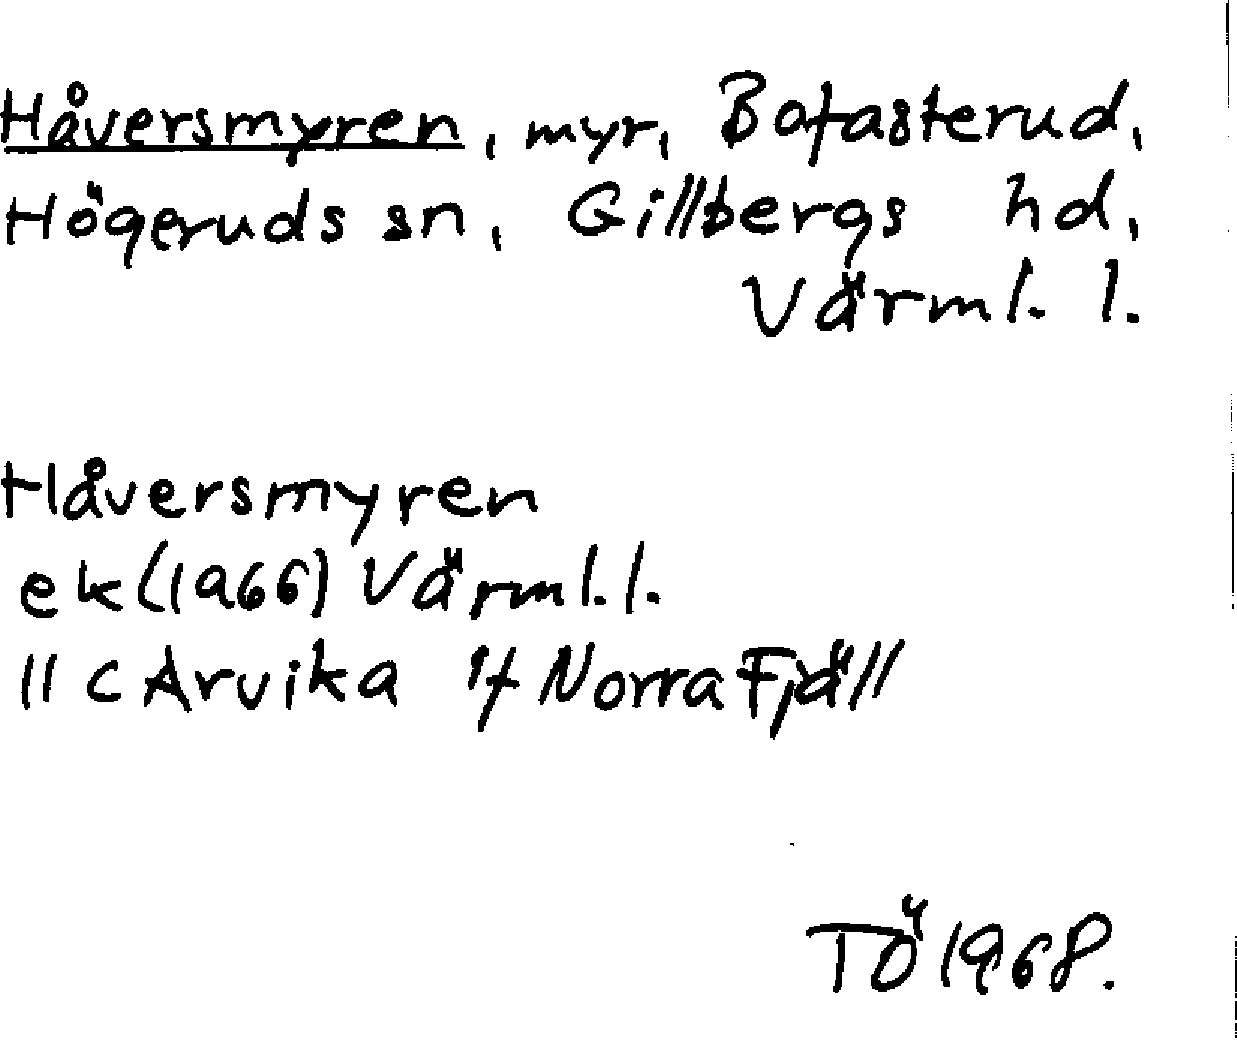 Håversmyren, myr, Bofasterud,
Högeruds sn, Gillbergs hd,
Värml. l.
Håversmyren
ek (1966) Värml. l.
11 c Arvika 1f Norra Fjäll
TÖ 1968.